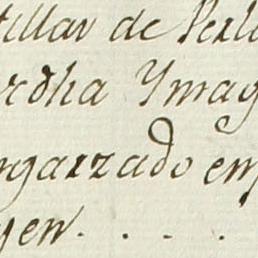 tillar de Perl
rdha Ymag
ngarzado en
yen. . . .